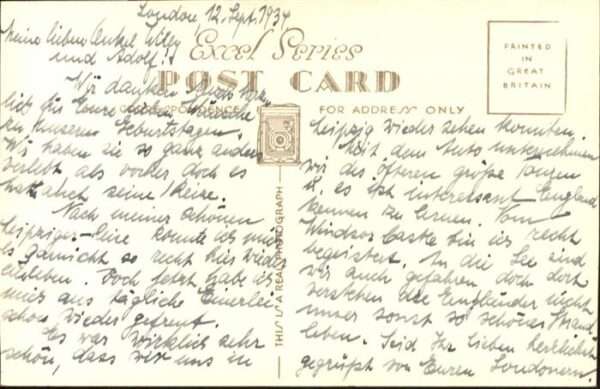 London, 12. Sept. 1934
Meine lieben Onkel Willy
und Adolf!
Excel Series
POST CARD
CORRESPONDENCE
FOR ADDRESS ONLY
PRINTED
IN
GREAT
BRITAIN
THIS IS A REAL PHOTOGRAPH
Wir danken Euch
lieb für Eure Wünsche
zu unseren Geburtstagen.
Wir haben sie so ganz anders
verlebt als vorher doch es
hat auch seine Reize.
Nach meiner schönen
Leipziger-Reise konnte ich mich
es garnicht so recht hier wieder
einleben. Doch jetzt habe ich
mich ans tägliche Einerlei
schon wieder gewöhnt.
Es war wirklich sehr
schön, dass wir uns in
Leipzig wieder sehen konnten.
Mit dem Auto unternehmen
wir des öfteren große
u. es ist interessant England
kennen zu lernen. Vom
Windsor Castle bin ich recht
begeistert. An die See sind
wir auch gefahren doch dort
verstehen die Engländer nicht
unser sonst so schönes Strand
leben. Seid Ihr lieben herzlichst
gegrüßt von Euren Londonern.